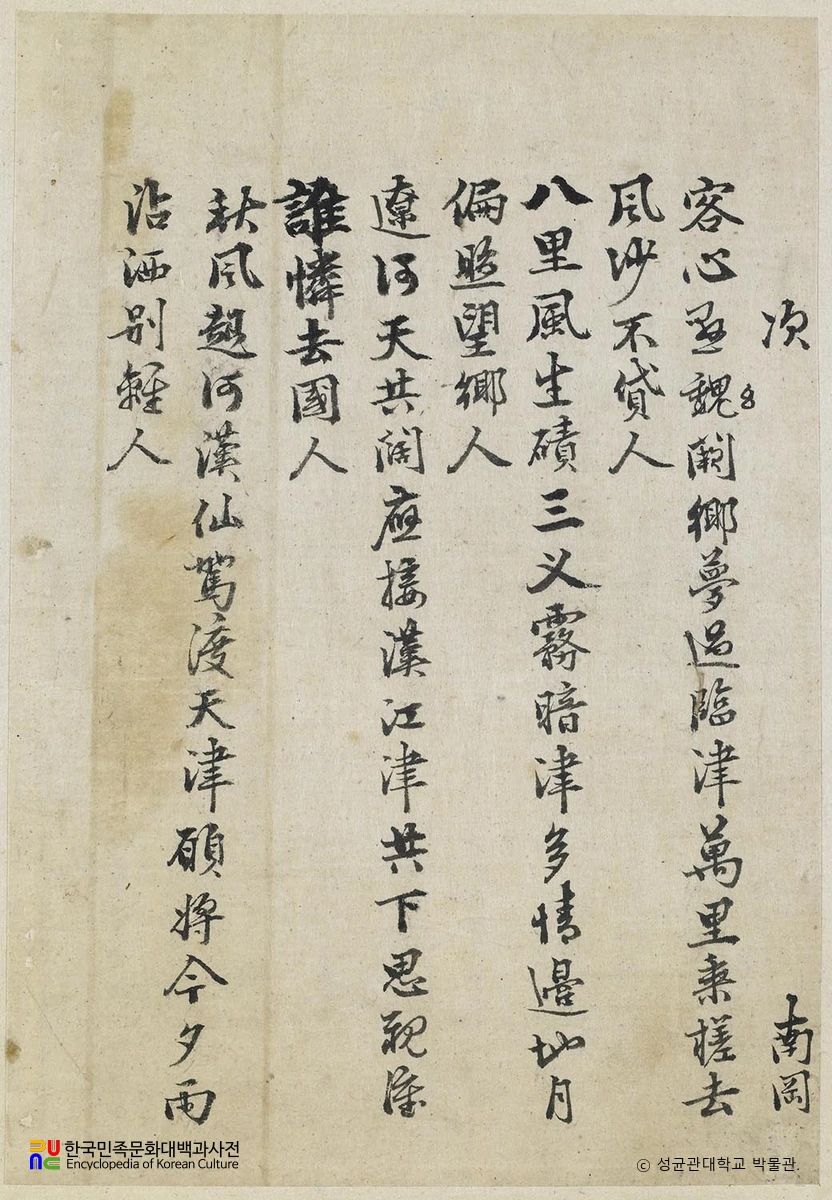 次 南岡
客心懸魏闕鄉夢過臨津萬里乘槎去
風沙不貸人
八里風生磧三叉霧暗津多情邊地月
偏照望鄉人
遼河天共闊應接漢江津共下思親淚
誰憐去國人
秋風趨河漢仙駕渡天津願將今夕雨
沾洒別離人
한국민족문화대백과사전
Encyclopedia of Korean Culture
© 성균관대학교 박물관.